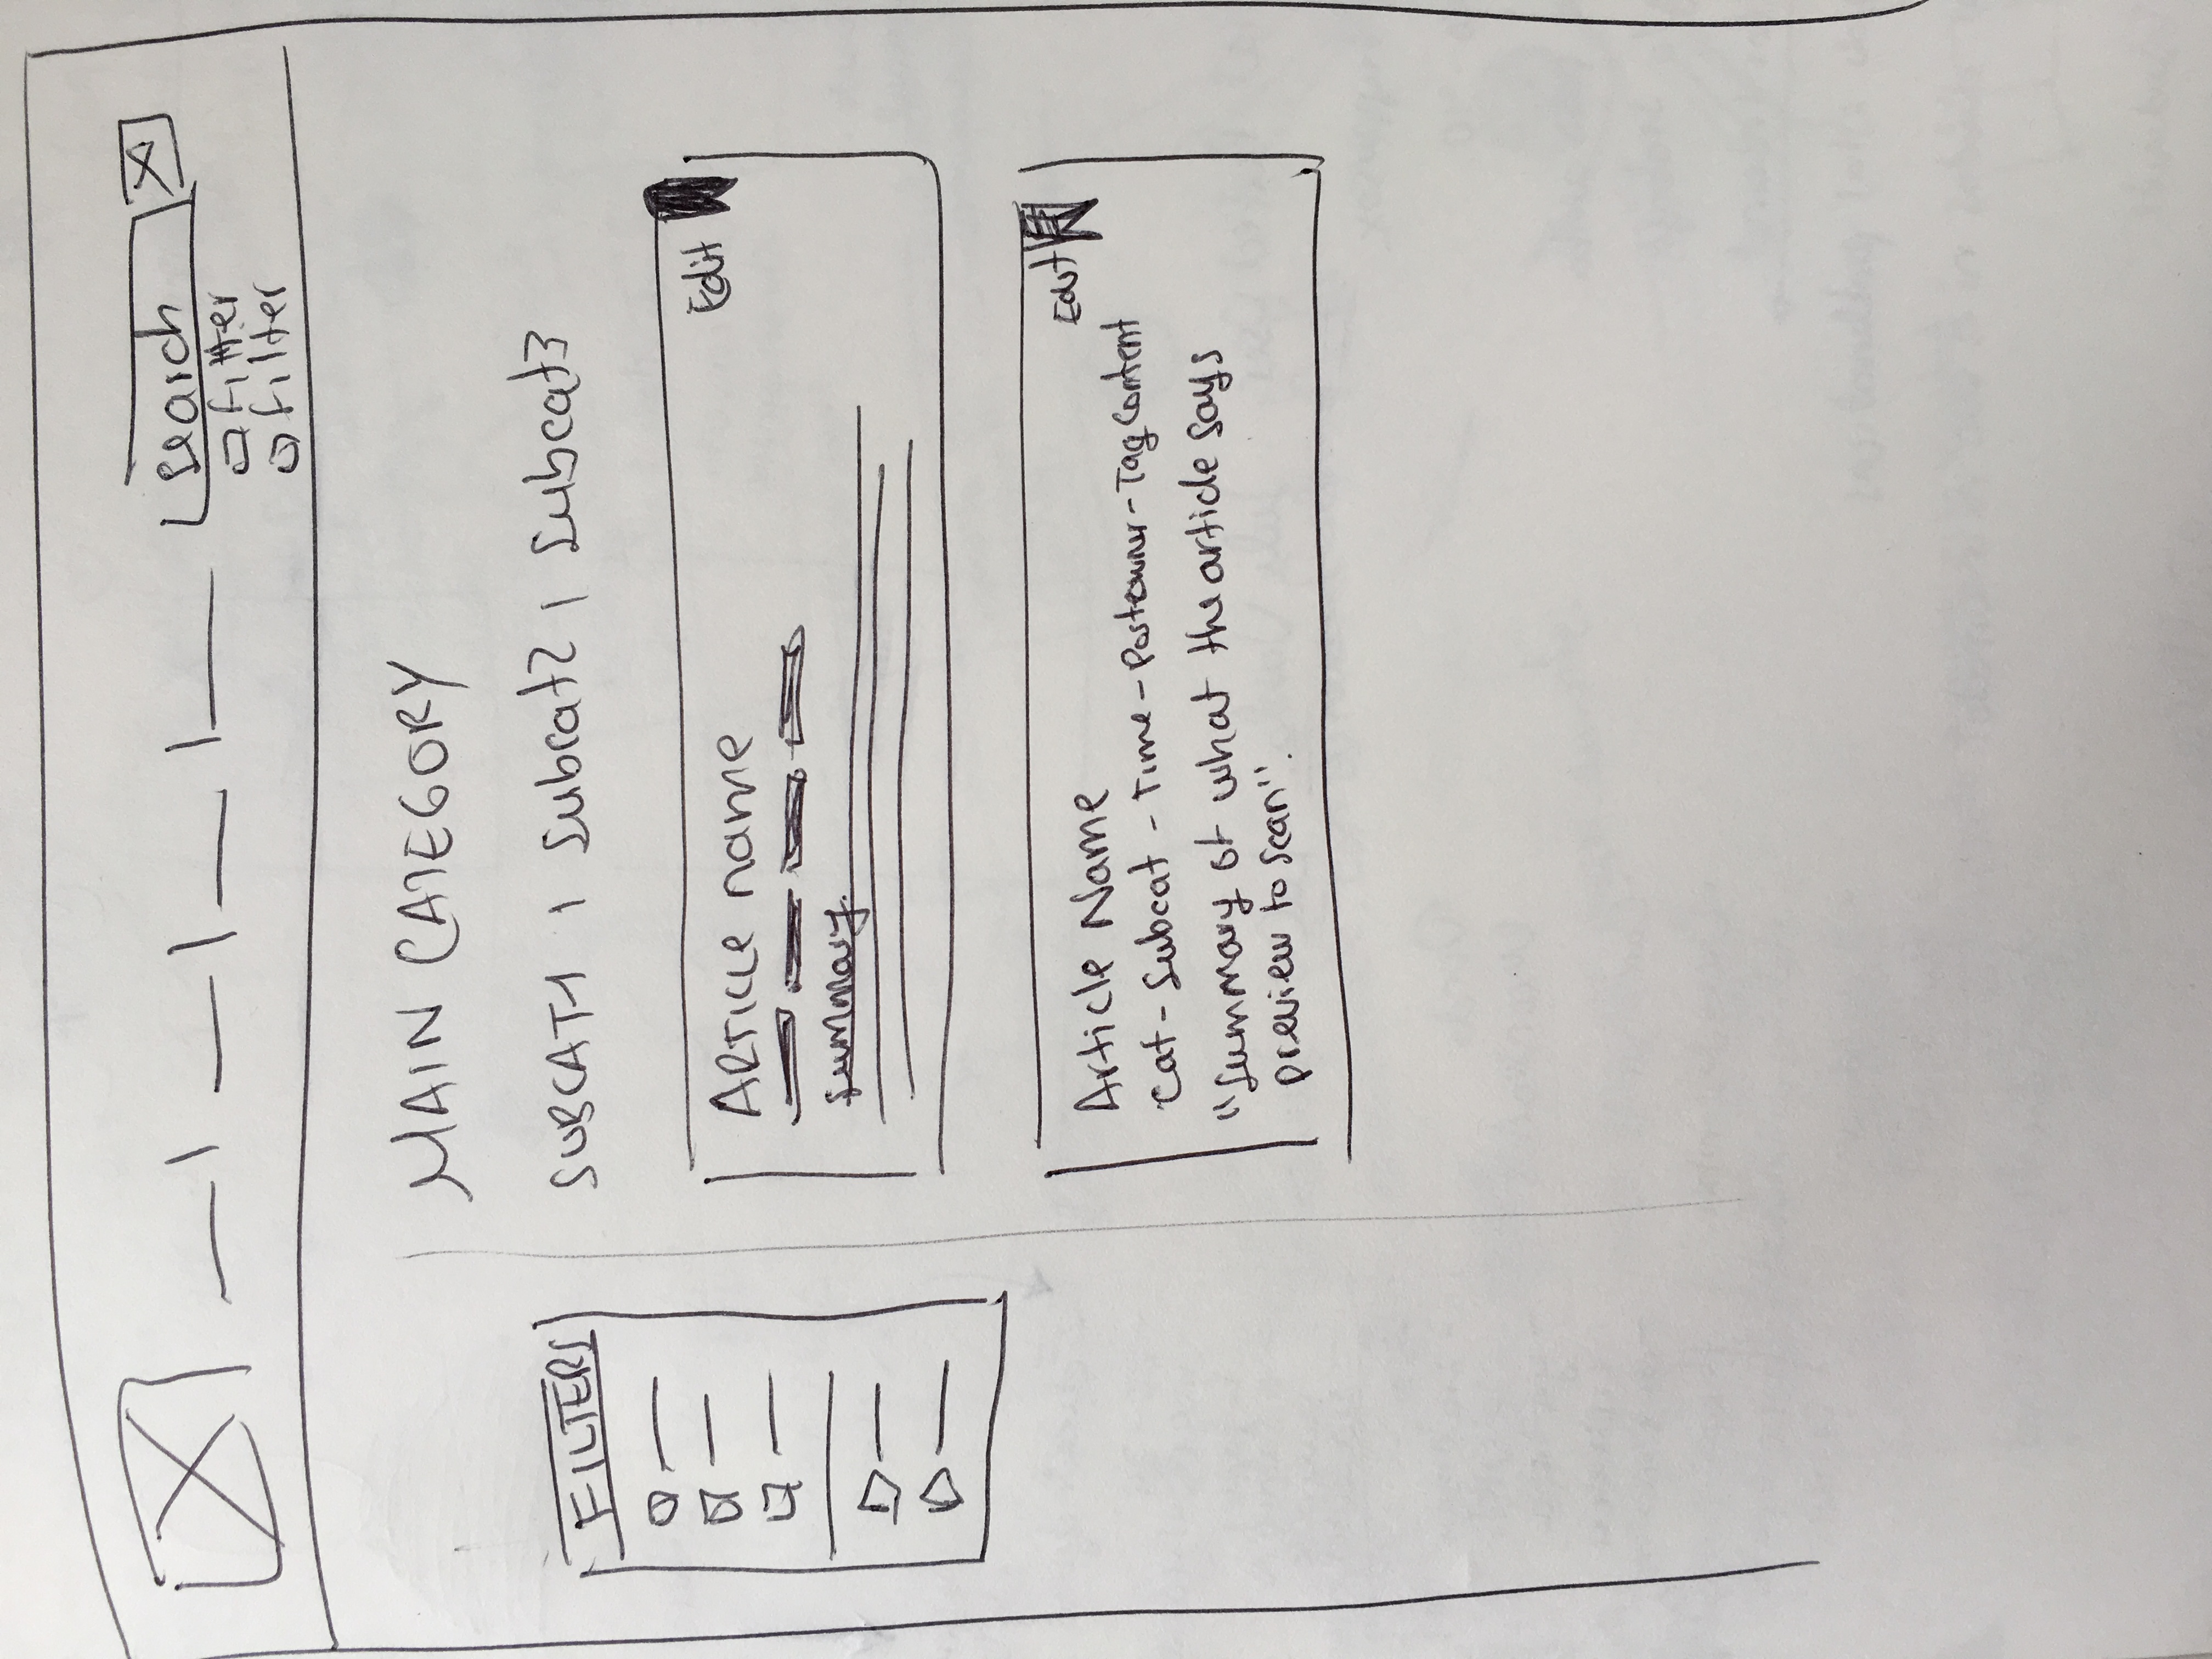 search
filter
filter
MAIN CATEGORY
SUBCAT1 | Subcat2 | Subcat3
FILTERS
Edit
ARTICLE name
Summary.
Edit
Article Name
Cat - Subcat - Time - Postowner - Tag Content
"Summary of what the article says
preview to scan".